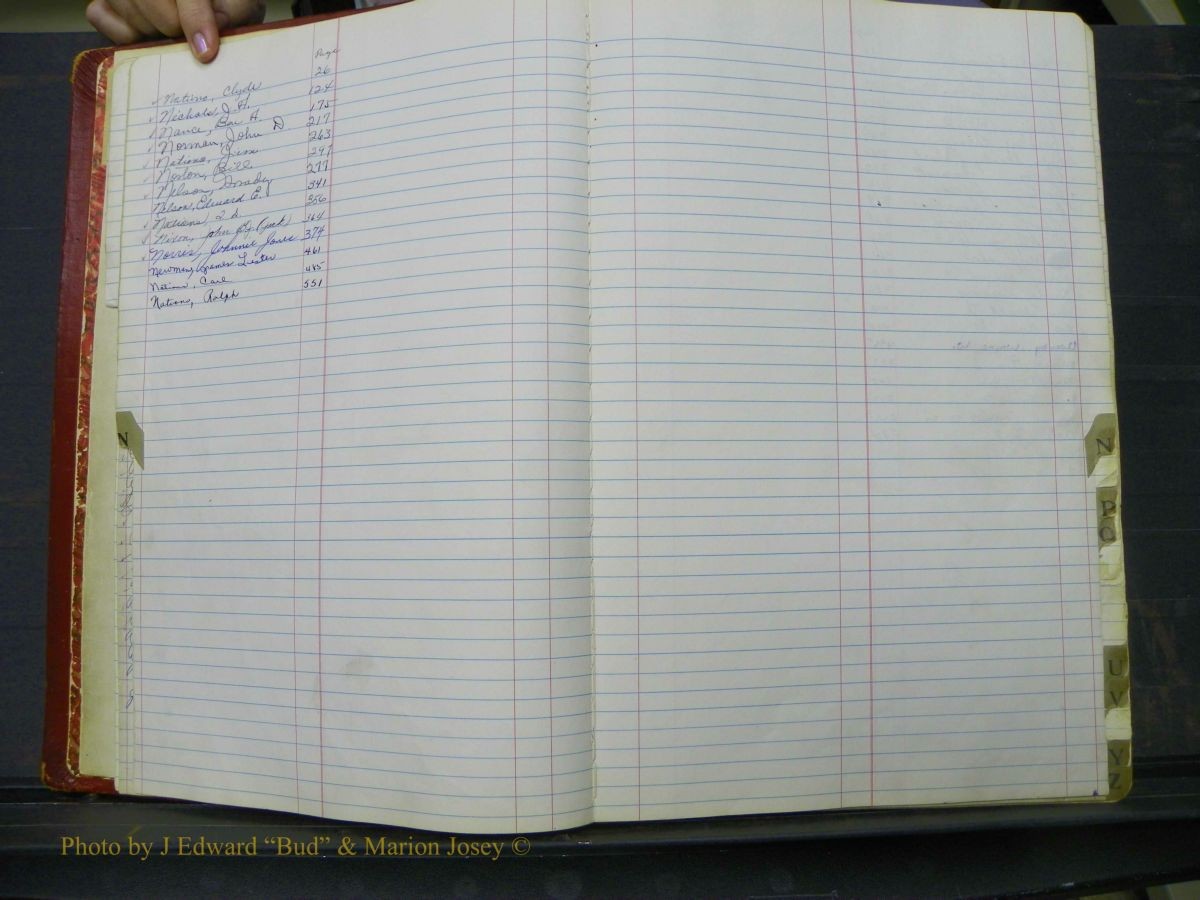 Page
✓ Nations, Clyde 26
✓ Nichols, J. H. 124
✓ Nance, A. 175
✓ Norman, John D 217
✓ Nations, Jim 263
✓ Norton, Bill 297
✓ Nelson, Grady 277
Nelson, Edward E. 341
✓ Nations, 356
✓ Nixon, John (Jack) 364
✓ Norris, Johnnie 374
Newman, James Lester 461
Nations, Carl 485
Nations, Ralph 551
N
N
P
Q
U
V
Y
Z
Photo by J Edward “Bud” & Marion Josey ©